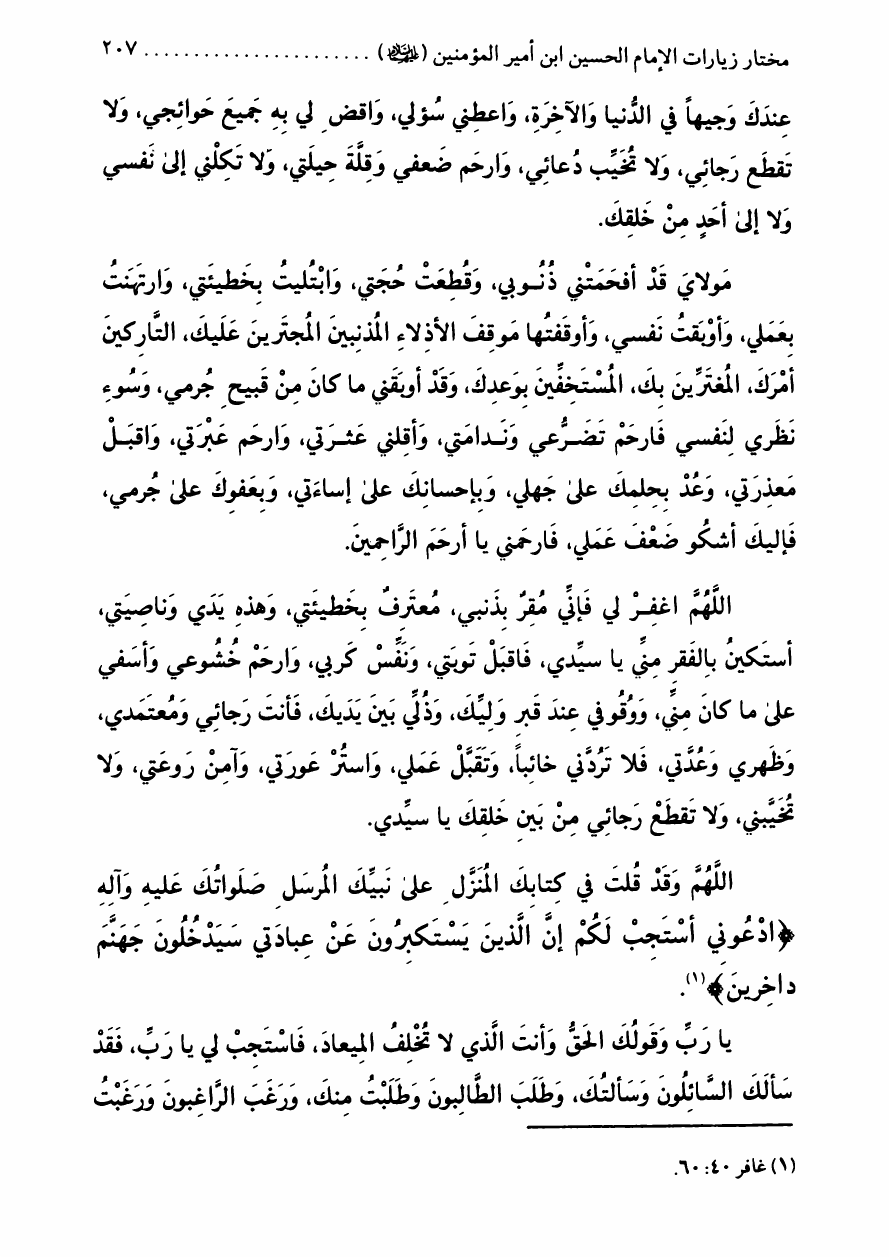 مختار زيارات الإمام الحسين ابن أمير المؤمنين (عليه السلام) ....................... ٢٠٧
عِندَكَ وَجيهاً في الدُّنيا وَالآخِرَةِ، وَاعطِني سُؤلي، وَاقضِ لي بِهِ جَميعَ حَوائِجي، وَلا
تَقطَع رَجائِي، وَلا تُخَيِّب دُعائِي، وَارحَم ضَعفي وَقِلَّةَ حِيلَتي، وَلا تَكِلْني إلىٰ نَفسي
وَلا إلىٰ أحَدٍ مِنْ خَلقِكَ.
مَولايَ قَدْ أفحَمَتْني ذُنُـوبي، وَقُطِعَتْ حُجَتي، وَابْتُليتُ بِخَطيئَتي، وَارتَهَنتُ
بِعَمَلي، وَأوْبَقتُ نَفسي، وَأوقَفتُها مَوقِفَ الأذِلاءِ المُذنِبينَ المُجتَرينَ عَلَيكَ، التَّارِكينَ
أمْرَكَ، المُغتَرِّينَ بِكَ، المُسْتَخِفِّينَ بِوَعدِكَ، وَقَدْ أوبَقَني ما كانَ مِنْ قَبيحِ جُرمي، وَسُوءِ
نَظَري لِنَفسي فَارحَمْ تَضَـرُّعي وَنَـدامَتي، وَأقِلني عَثـرَتي، وَارحَم عَبْرَتي، وَاقبَـلْ
مَعذِرَتي، وَعُدْ بِحِلمِكَ علىٰ جَهلي، وَبِإحسانِكَ علىٰ إساءَتي، وَبِعَفوِكَ علىٰ جُرمي،
فَإليكَ أشكُو ضَعْفَ عَمَلي، فَارحَمْني يا أرحَمَ الرَّاحِمينَ.
اللَّهُمَّ اغفِـرْ لي فَإنِّي مُقِرٌ بِذَنبي، مُعتَرِفٌ بِخَطيئَتي، وَهذهِ يَدَي وَناصِيَتي،
أستَكينُ بِالفَقرِ مِنِّي يا سيِّدي، فَاقبَلْ تَوبَتي، وَنَفِّسْ كَربي، وَارحَمْ خُشُوعي وَأسَفي
علىٰ ما كانَ مِنِّي، وَوُقُوفي عِندَ قَبرِ وَلِيِّكَ، وَذُلِّي بَينَ يَدَيكَ، فَأنتَ رَجائِي وَمُعتَمَدي،
وَظَهري وَعُدَّتي، فَلا تَرُدَّني خائِباً، وَتَقَبَّلْ عَمَلي، وَاستُرْ عَورَتي، وَآمِنْ رَوعَتي، وَلا
تُخَيَّبني، وَلا تَقطَعْ رَجائِي مِنْ بَينِ خَلقِكَ يا سيِّدي.
اللَّهُمَّ وَقَدْ قُلتَ في كِتابِكَ المُنَزَّلِ علىٰ نَبيِّكَ المُرسَلِ صَلَواتُكَ عَليهِ وَآلِهِ
﴿ادْعُوني أسْتَجِبْ لَكُمْ إنَّ الَّذينَ يَسْتَكبِرُونَ عَنْ عِبادَتي سَيَدْخُلُونَ جَهَنَّمَ
داخِرينَ﴾(١).
يا رَبِّ وَقَولُكَ الحَقُّ وَأنتَ الَّذي لا تُخْلِفُ الميعادَ، فَاسْتَجِبْ لي يا رَبِّ، فَقَدْ
سَألَكَ السَّائِلُونَ وَسَألتُكَ، وَطَلَبَ الطَّالِبونَ وَطَلَبْتُ مِنكَ، وَرَغَبَ الرَّاغِبونَ وَرَغَبْتُ
(١) غافر ٤٠: ٦٠.